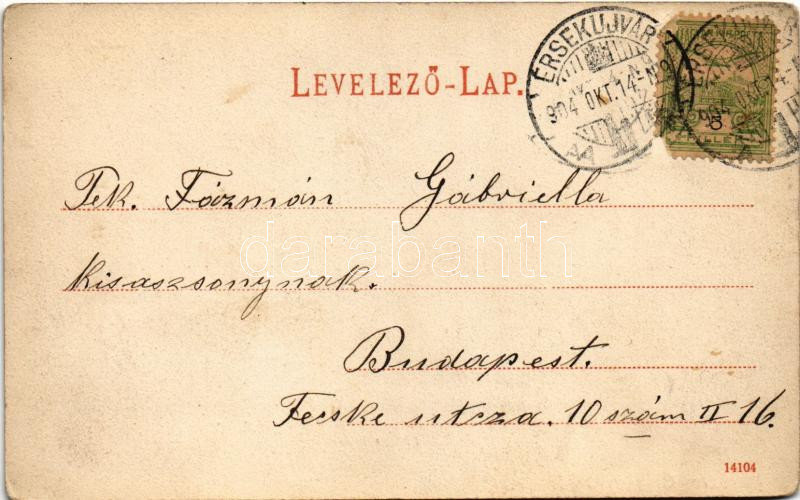 LEVELEZŐ-LAP.
ÉRSEKUJVÁR
904 OKT. 14. N 9
AA
Tek. Fázmán Gábriella
darabanth
kisaszsonynak.
Budapest.
Fecske utcza. 10 szám II 16.
14104